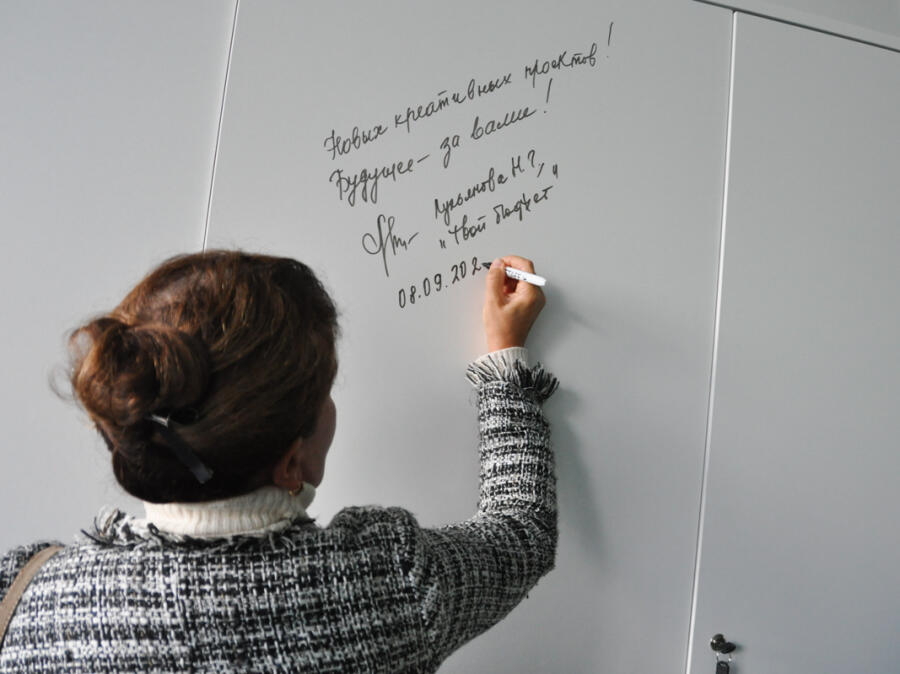 Новых креативных проектов!
Будущее - за вами!
Лукьянова Н.Г.,
"Твой бюджет"
08.09.202